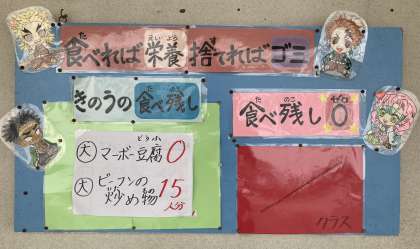 食べれば栄養 捨てればゴミ
きのうの食べ残し
食べ残し0
大 マーボー豆腐 0
大 ビーフンの炒め物 15人分
クラス